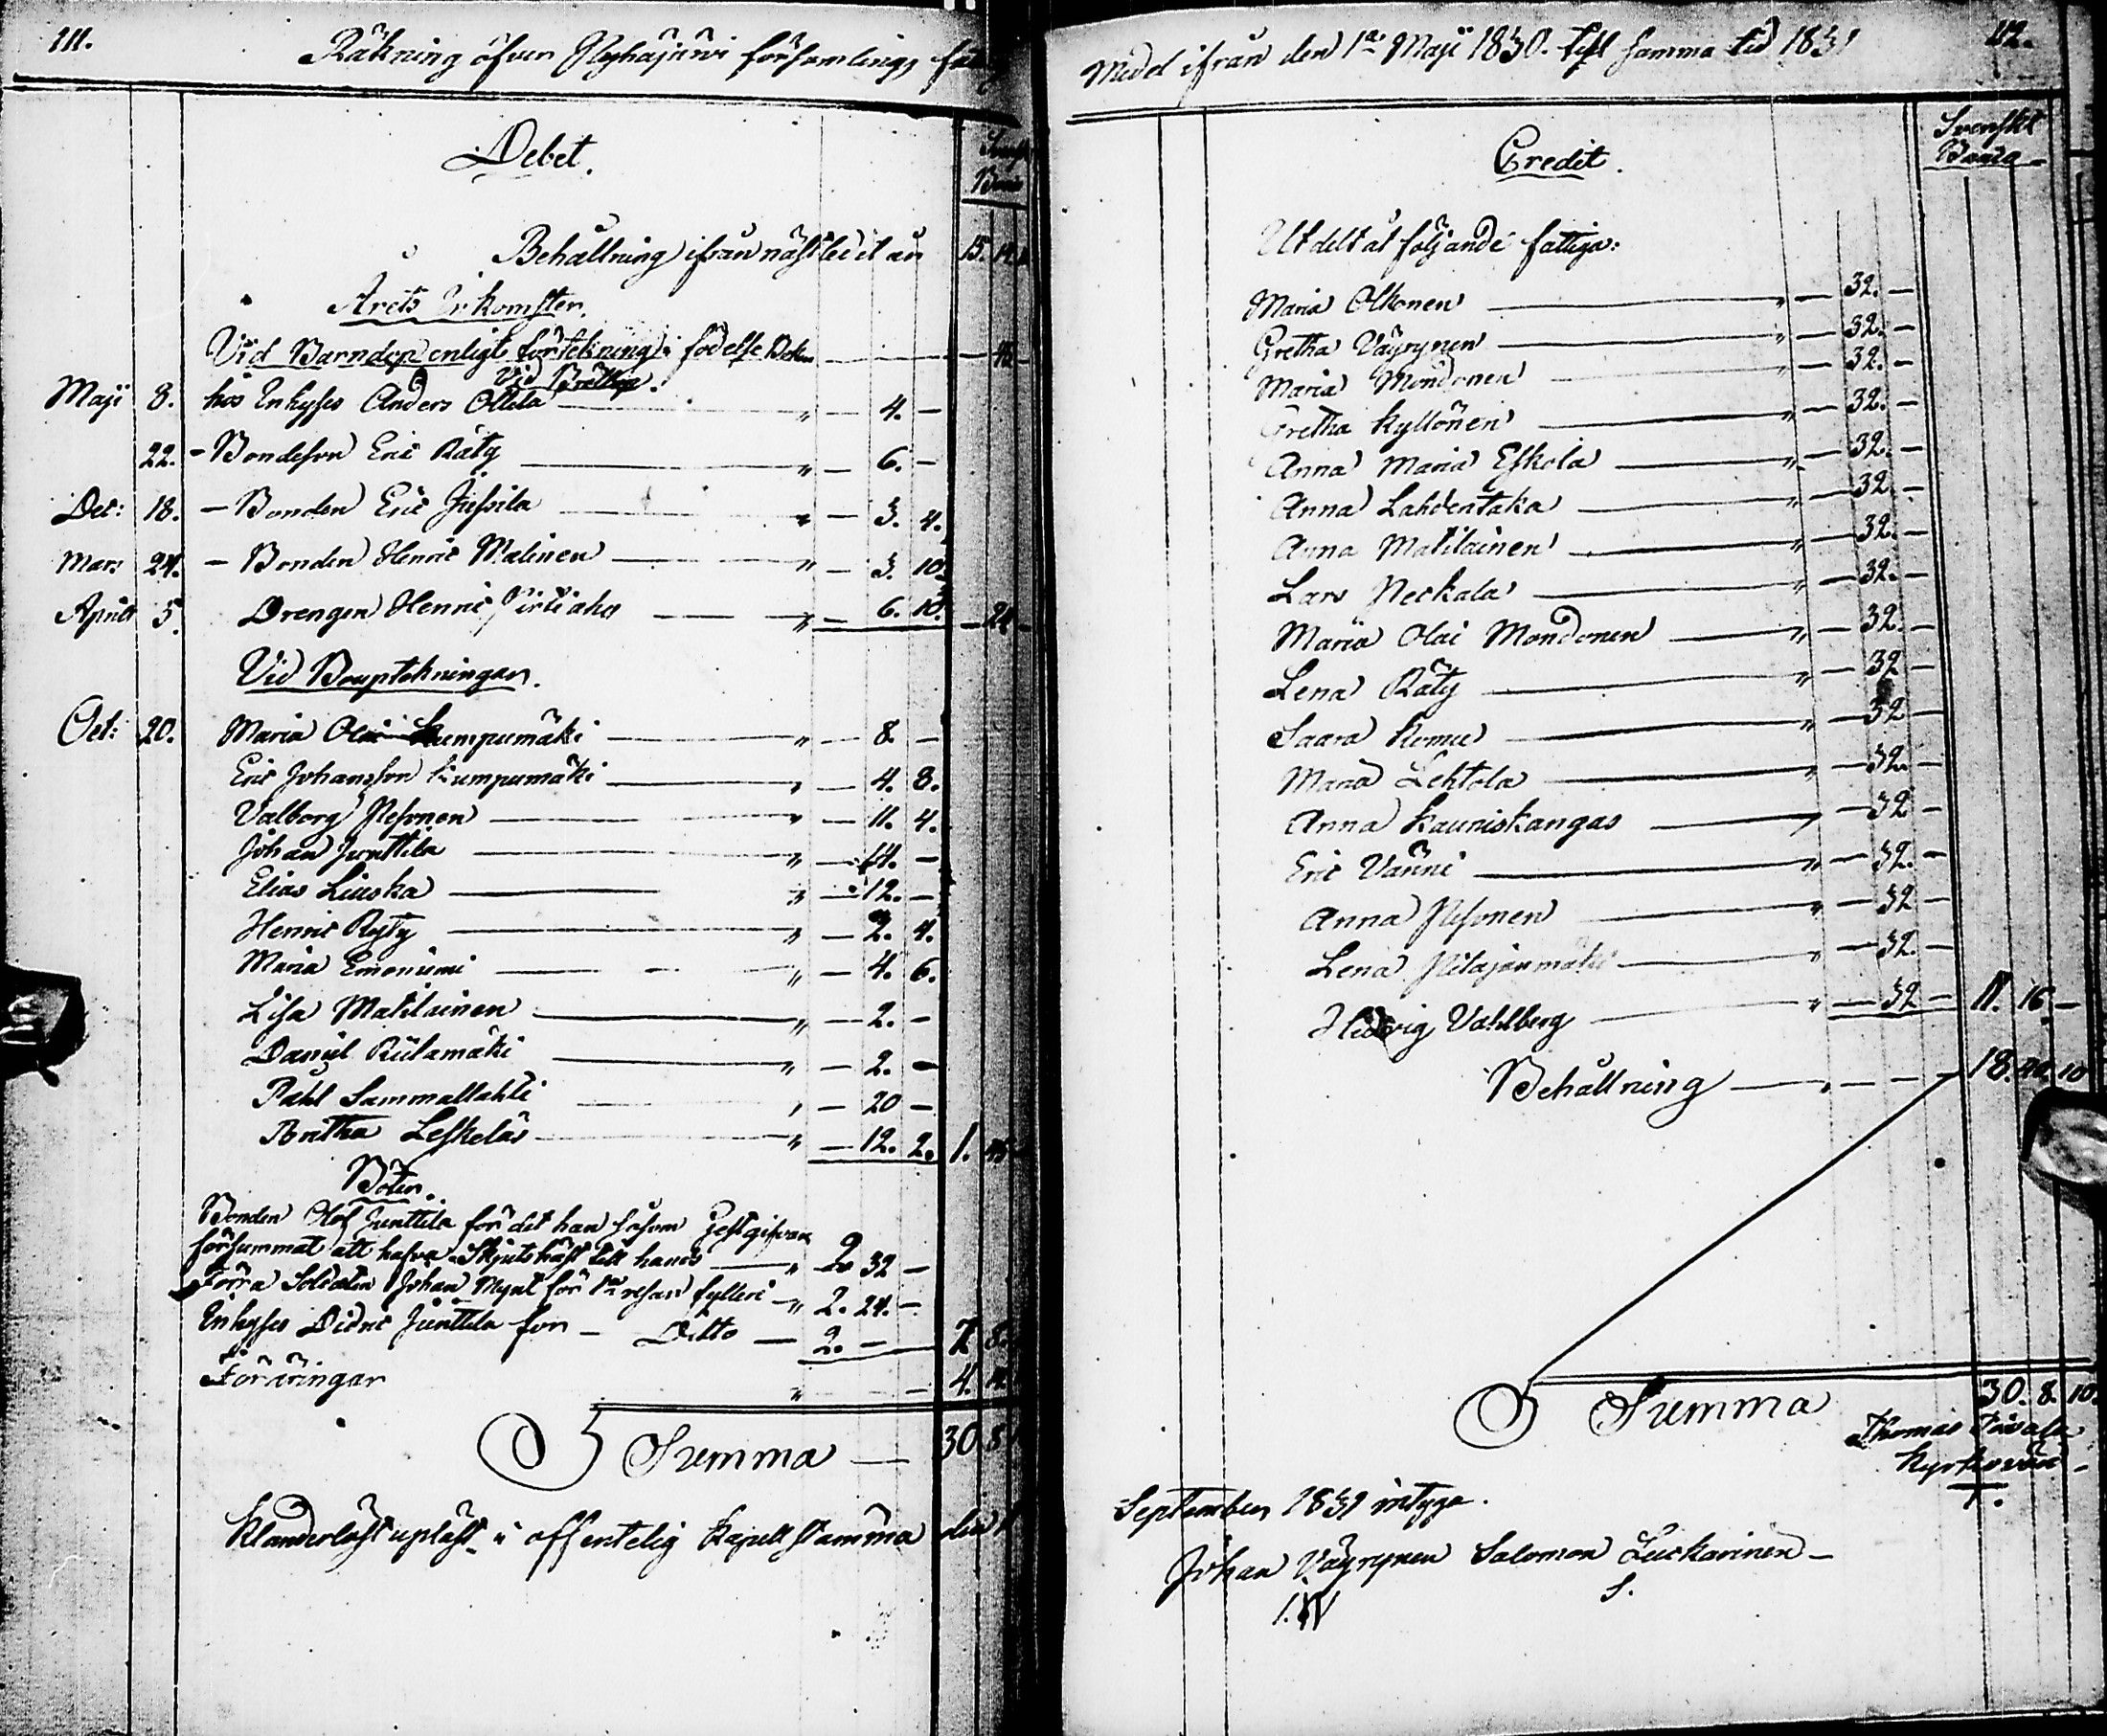 111.
Räkning öfver Pyhäjärvi församlings
Debet.
Behållning ifrån nästledit år 15.
Årets Inkomster.
Vid Barndop enligt förtekning i födelse Boken — —
Vid Bröllop.
Maji 8. hos Inhyses Anders Ollila — " — 4. —
22. - Bondeson Eric Räty — " — 6. —
Dec: 18. — Bonden Eric Jussila — " — 3. 4.
Mars 24. — Bonden Henric Malinen — " — 3. 10.
April 5. Drengen Henric Pirtiaho — " — 6. 10. — 24 —
Vid Bouptekningar.
Oct: 20. Maria Olai Kumpumäki — " — 8. —
Eric Johansson Kumpumäki — " — 4. 8.
Valborg Nesonen — " — 11. 4.
Johan Junttila — " — 14. —
Elias Liuska — " — 12. —
Henric Räty — " — 2. 4.
Maria Emoniemi — " — 4. 6.
Lisa Matilainen — " — 2. —
Daniel Riilamäki — " — 2. —
Påhl Sammallahti — " — 20 —
Britha Leskelä — " — 12. 2. 1. 45
Böter.
Bonden Olof Junttila för det han såsom Gestgifvare
försummat att hafva Skjutshäst till hands — " 2 32 —
Förra Soldaten Johan Mynt för 1a resan fylleri — " 2. 24. —
Inhyses Didric Junttila för — Ditto — 2. — 7 8.
Föräringar " — 4.
Summa — 30 8
Klanderlöst upläst i offentelig Kapell stämma den
112.
Medel ifrån den 1a Maji 1830. till samma tid 1831
Credit.
Svenskt
Banco
Utdelt åt följande fattiga:
Maria Olkonen — " — 32. —
Gretha Väyrynen — " — 32. —
Maria Mondonen — " — 32. —
Gretha Kyllönen — " — 32. —
Anna Maria Eskola — " — 32. —
Anna Lahdentaka — " — 32. —
Anna Matilainen — " — 32. —
Lars Neckala — " — 32. —
Maria Olai Mondonen — " — 32. —
Lena Räty — " — 32 —
Saara Komu — " — 32 —
Maria Lehtola — " — 32. —
Anna Kauniskangas — " — 32 —
Eric Vänni — " — 32. —
Anna Nesonen — " — 32 —
Lena Pitäjänmäki — " — 32. —
Hedvig Vahlberg — " — 32 — 11. 16. —
Behållning — " — — — 18. 40. 10
Summa 30. 8. 10.
Thomas
Kyrkovärd
September 1831 intyga.
Johan Väyrynen Salomon Leskarinen —
I. W S.